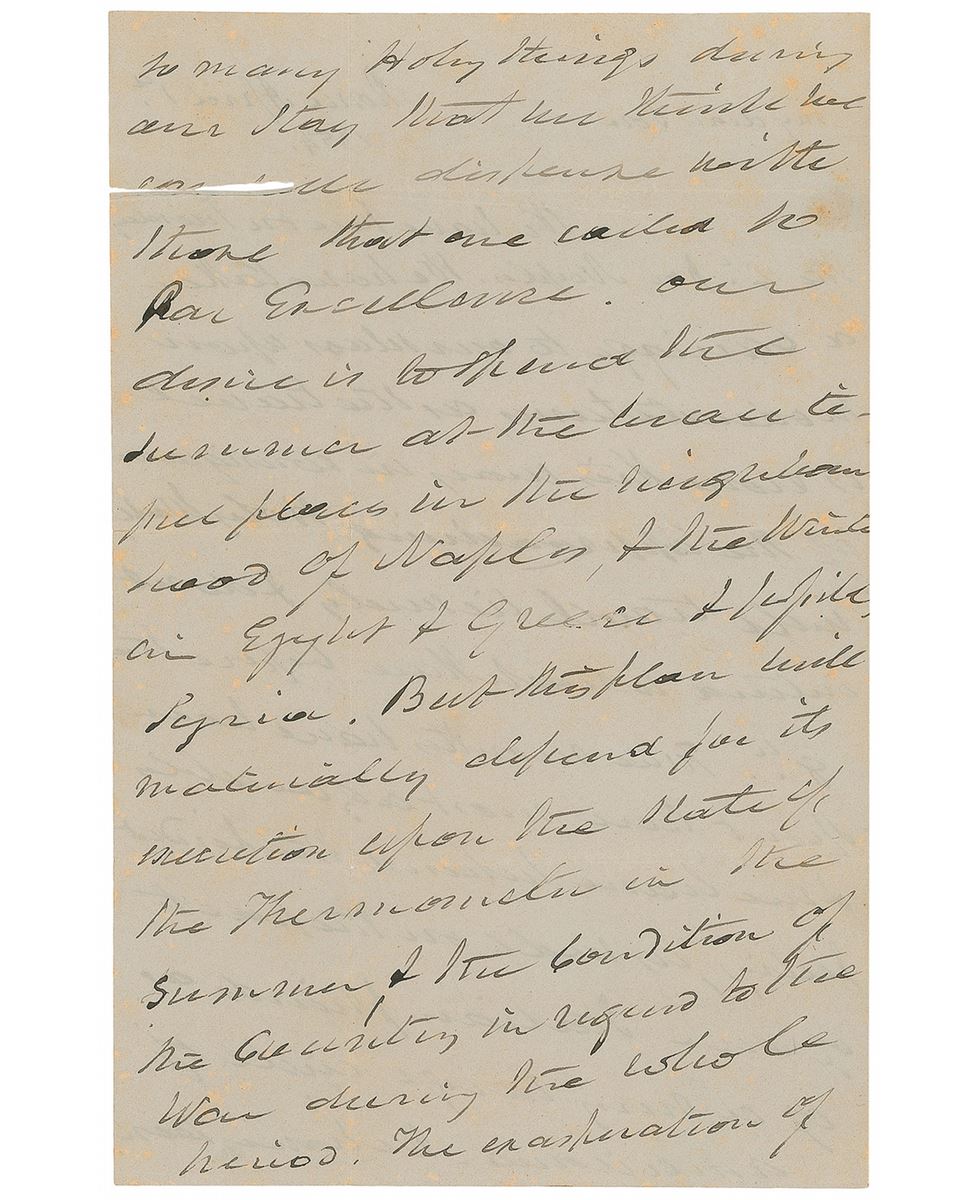 so many Holy things during
our Stay that we think we
can well dispense with
those that are called so
Par Excellence. our
desire is to spend the
summer at the beauti-
ful places in the neighbour
hood of Naples, & the Winter
in Egypt & Greece &
Syria. But this plan will
materially depend for its
execution upon the State of
the Thermometer in the
summer, & the Condition of
the Country in regard to the
War during the whole
period. The exasperation of